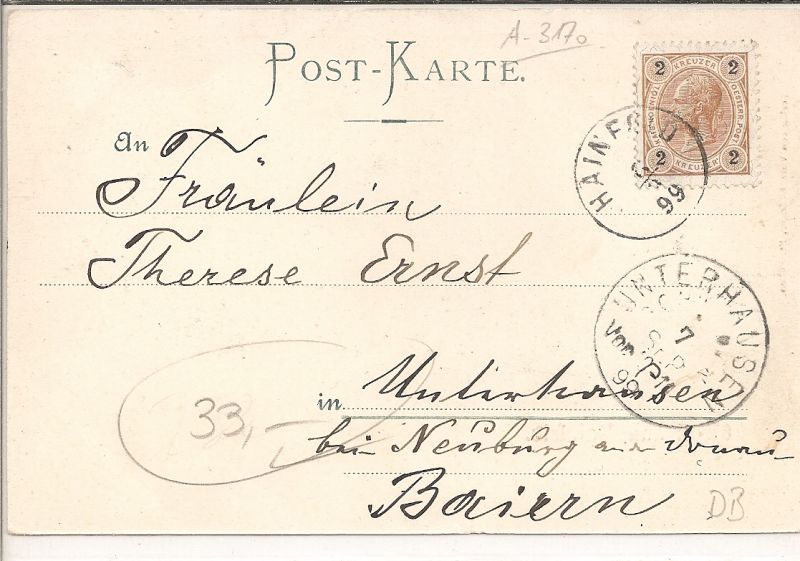 A-3170
POST-KARTE.
2 KREUZER 2
KAIS. KOENIGL. OESTERR. POST
2 KREUZER 2
HAINFELD
99
An Fräulein
Therese Ernst
UNTERHAUSEN
7
SEP
99
in Unterhausen
33,-
bei Neuburg an der Donau
Baiern
DB